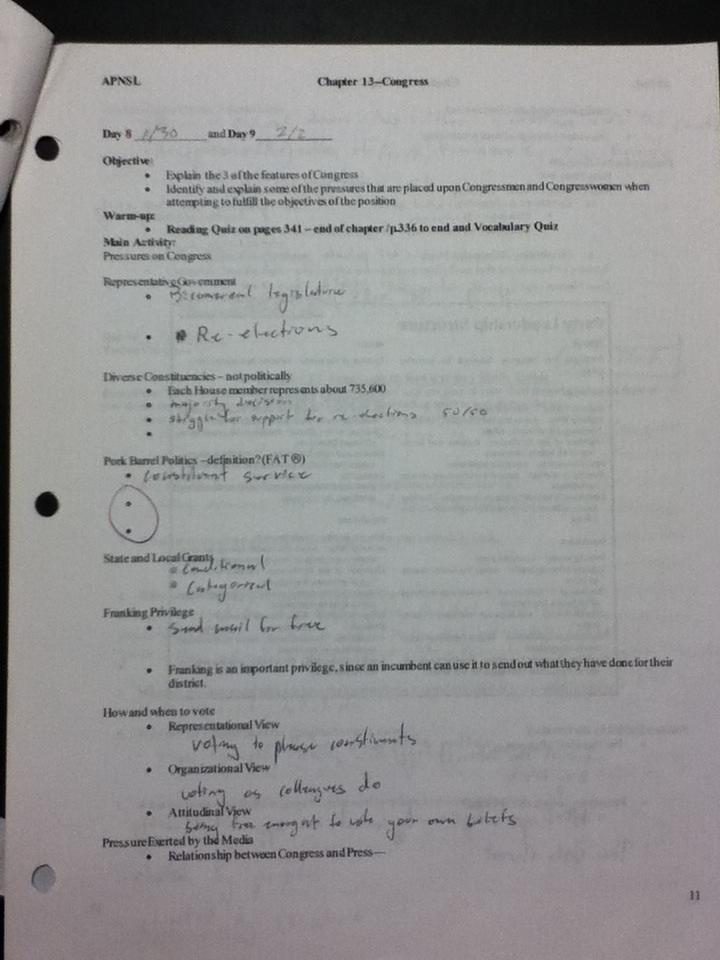 APNSL Chapter 13–Congress
Day 8 1/30 and Day 9 2/2
Objective:
• Explain the 3 of the features of Congress
• Identify and explain some of the pressures that are placed upon Congressmen and Congresswomen when
attempting to fulfill the objectives of the position
Warm-up:
• Reading Quiz on pages 341 – end of chapter /p.336 to end and Vocabulary Quiz
Main Activity:
Pressures on Congress
Representative Government
• Bicameral legislature
• Re-elections
Diverse Constituencies – not politically
• Each House member represents about 735,600
• majority decision
• struggle for support for re elections 50/50
•
Pork Barrel Politics –definition? (FAT ®)
• constituent service
•
•
State and Local Grants
• Conditional
• Categorical
Franking Privilege
• Send mail for free
• Franking is an important privilege, since an incumbent can use it to send out what they have done for their
district.
How and when to vote
• Representational View
voting to please constituents
• Organizational View
voting as colleagues do
• Attitudinal View
being free to vote your own
Pressure Exerted by the Media
• Relationship between Congress and Press—
11